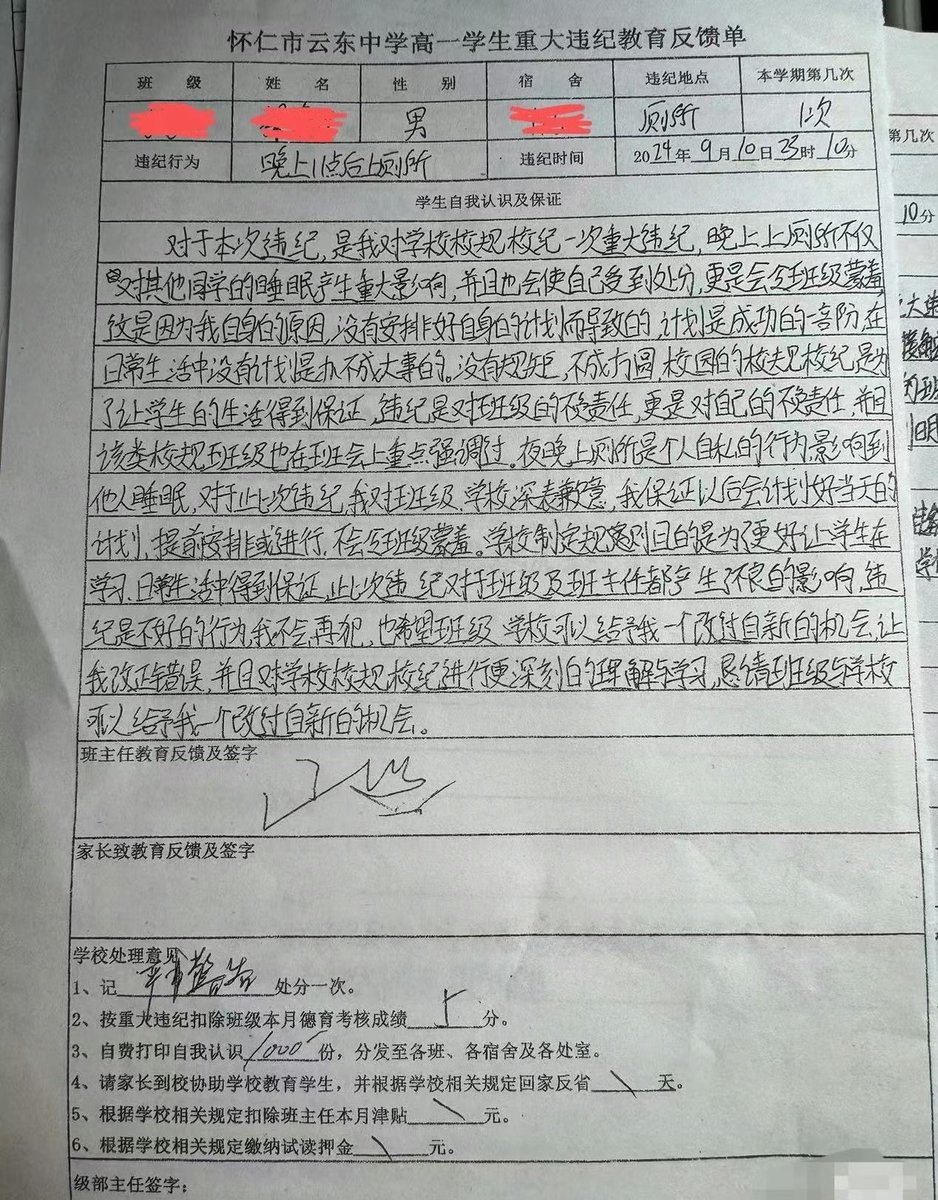 怀仁市云东中学高一学生重大违纪教育反馈单
班 级 姓 名 性 别 宿 舍 违纪地点 本学期第几次
男 厕所 1次
违纪行为 晚上11点后上厕所 违纪时间 2024年9月10日23时10分
学生自我认识及保证
对于本次违纪，是我对学校校规校纪一次重大违纪，晚上上厕所不仅
对其他同学的睡眠产生重大影响，并且也会使自己受到处分，更是会令班级蒙羞
这是因为我自身的原因，没有安排好自身的计划而导致的，计划是成功的一音阶，在
日常生活中没有计划是办不成大事的。没有规矩，不成方圆，校园的校规校纪是为
了让学生的生活得到保证，违纪是对班级的不负责任，更是对自己的不负责任，并且
该类校规班级也在班会上重点强调过。夜晚上厕所是个人自私的行为，影响到
他人睡眠，对于此次违纪，我对班级、学校深表歉意，我保证以后会计划好当天的
计划，提前安排或进行，不会令班级蒙羞。学校制定规章原则目的是为了更好让学生在
学习、日常生活中得到保证，此次违纪对于班级及班主任都产生了不良的影响，违
纪是不好的行为，我不会再犯，也希望班级、学校可以给予我一个改过自新的机会，让
我改正错误，并且对学校校规、校纪进行更深刻的理解与学习，恳请班级与学校
可以给予我一个改过自新的机会。
班主任教育反馈及签字
家长致教育反馈及签字
学校处理意见
1、记严重警告处分一次。
2、按重大违纪扣除班级本月德育考核成绩5分。
3、自费打印自我认识1000份，分发至各班、各宿舍及各处室。
4、请家长到校协助学校教育学生，并根据学校相关规定回家反省\天。
5、根据学校相关规定扣除班主任本月津贴\元。
6、根据学校相关规定缴纳试读押金\元。
级部主任签字：
第几次
10分